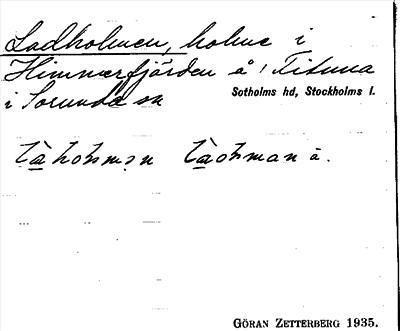 Ladholmen, holme i
Himmerfjärden å 1 Fituna
i Sorunda sn Sotholms hd, Stockholms l.
GÖRAN ZETTERBERG 1935.